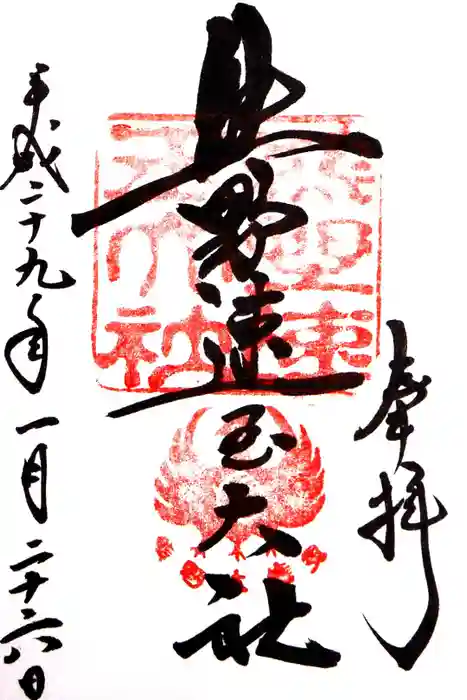 奉拝
熊野速玉大社
平成二十九年一月二十六日
熊野速玉大社